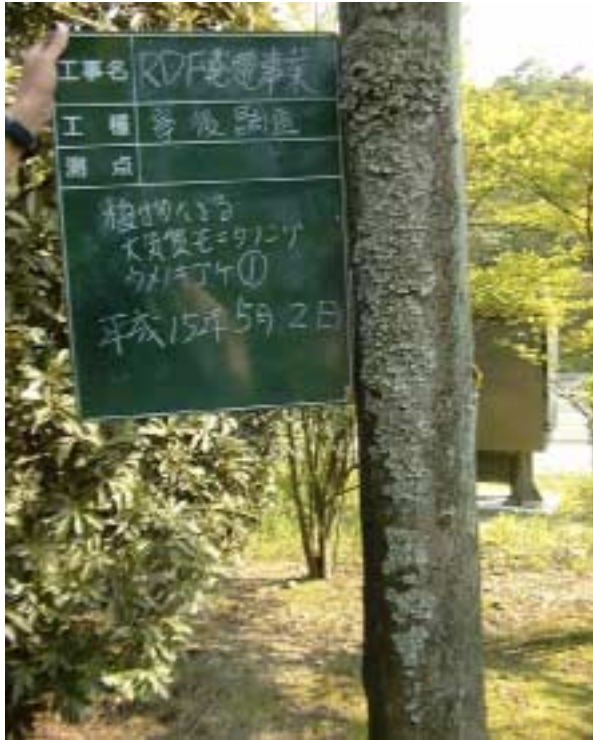 工事名 RDF発電事業
工種 事後調査
測点
植物による
大気質モニタリング
ウメノキゴケ①
平成15年5月2日